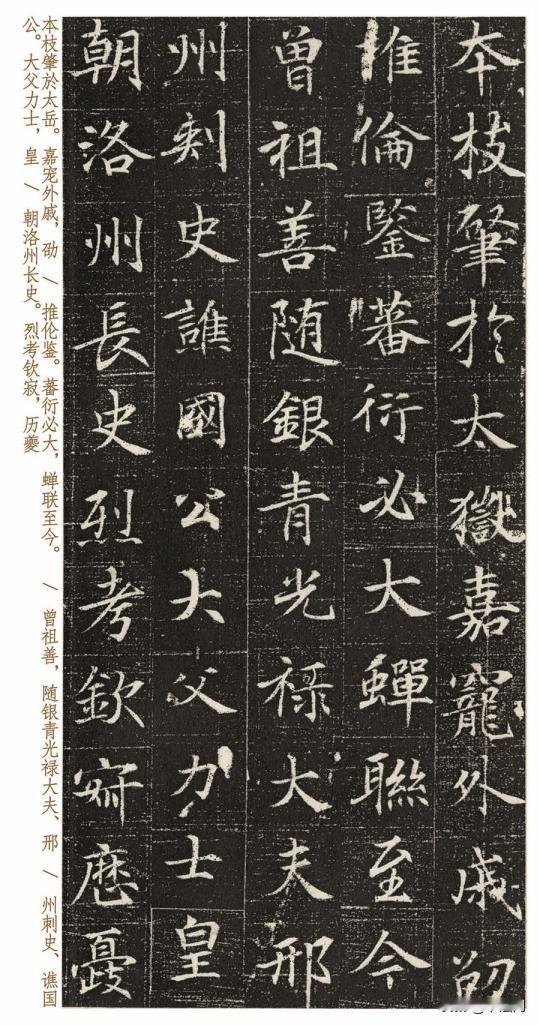 本枝肇於太嶽嘉寵外戚劭
推倫鑒蕃衍必大蟬聯至今
曾祖善随銀青光祿大夫邢
州刺史譙國公大父力士皇
朝洛州長史烈考欽寂歷夔
本枝肇於太岳。嘉宠外戚，劭 / 推伦鉴。蕃衍必大，蝉联至今。 / 曾祖善，随银青光禄大夫、邢 / 州刺史、谯国
公。大父力士，皇 / 朝洛州长史。烈考钦寂，历夔